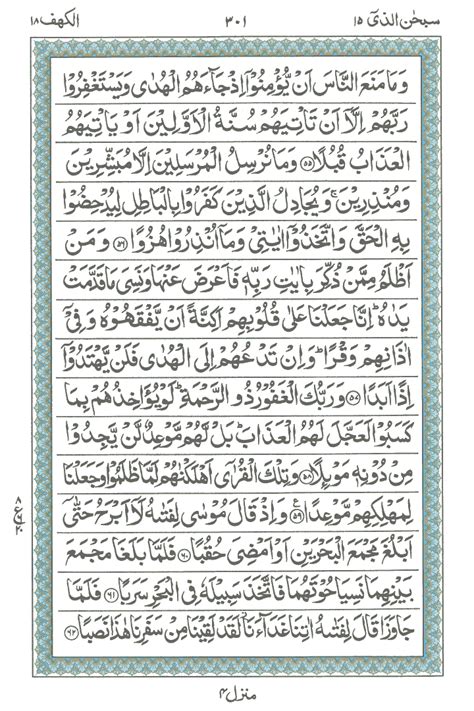 سبحٰن الذیٓ ۱۵
۳۰۱
الکهف ۱۸
وَمَا مَنَعَ النَّاسَ اَنْ يُّؤْمِنُوْٓا اِذْ جَآءَهُمُ الْهُدٰى وَيَسْتَغْفِرُوْا
رَبَّهُمْ اِلَّآ اَنْ تَاْتِيَهُمْ سُنَّةُ الْاَوَّلِيْنَ اَوْ يَاْتِيَهُمُ
الْعَذَابُ قُبُلًا ﴿۵۵﴾ وَمَا نُرْسِلُ الْمُرْسَلِيْنَ اِلَّا مُبَشِّرِيْنَ
وَمُنْذِرِيْنَ ۚ وَيُجَادِلُ الَّذِيْنَ كَفَرُوْا بِالْبَاطِلِ لِيُدْحِضُوْا
بِهِ الْحَقَّ وَاتَّخَذُوْٓا اٰيٰتِيْ وَمَآ اُنْذِرُوْا هُزُوًا ﴿۵۶﴾ وَمَنْ
اَظْلَمُ مِمَّنْ ذُكِّرَ بِاٰيٰتِ رَبِّهٖ فَاَعْرَضَ عَنْهَا وَنَسِيَ مَا قَدَّمَتْ
يَدٰهُ ؕ اِنَّا جَعَلْنَا عَلٰى قُلُوْبِهِمْ اَكِنَّةً اَنْ يَّفْقَهُوْهُ وَفِيْٓ
اٰذَانِهِمْ وَقْرًا ؕ وَاِنْ تَدْعُهُمْ اِلَى الْهُدٰى فَلَنْ يَّهْتَدُوْٓا
اِذًا اَبَدًا ﴿۵۷﴾ وَرَبُّكَ الْغَفُوْرُ ذُو الرَّحْمَةِ ؕ لَوْ يُؤَاخِذُهُمْ بِمَا
كَسَبُوْا لَعَجَّلَ لَهُمُ الْعَذَابَ ؕ بَلْ لَّهُمْ مَّوْعِدٌ لَّنْ يَّجِدُوْا
مِنْ دُوْنِهٖ مَوْئِلًا ﴿۵۸﴾ وَتِلْكَ الْقُرٰٓى اَهْلَكْنٰهُمْ لَمَّا ظَلَمُوْا وَجَعَلْنَا
لِمَهْلِكِهِمْ مَّوْعِدًا ﴿۵۹﴾ وَاِذْ قَالَ مُوْسٰى لِفَتٰىهُ لَآ اَبْرَحُ حَتّٰٓى
اَبْلُغَ مَجْمَعَ الْبَحْرَيْنِ اَوْ اَمْضِيَ حُقُبًا ﴿۶۰﴾ فَلَمَّا بَلَغَا مَجْمَعَ
بَيْنِهِمَا نَسِيَا حُوْتَهُمَا فَاتَّخَذَ سَبِيْلَهٗ فِي الْبَحْرِ سَرَبًا ﴿۶۱﴾ فَلَمَّا
جَاوَزَا قَالَ لِفَتٰىهُ اٰتِنَا غَدَآءَنَا ۫ لَقَدْ لَقِيْنَا مِنْ سَفَرِنَا هٰذَا نَصَبًا ﴿۶۲﴾
منزل ۴